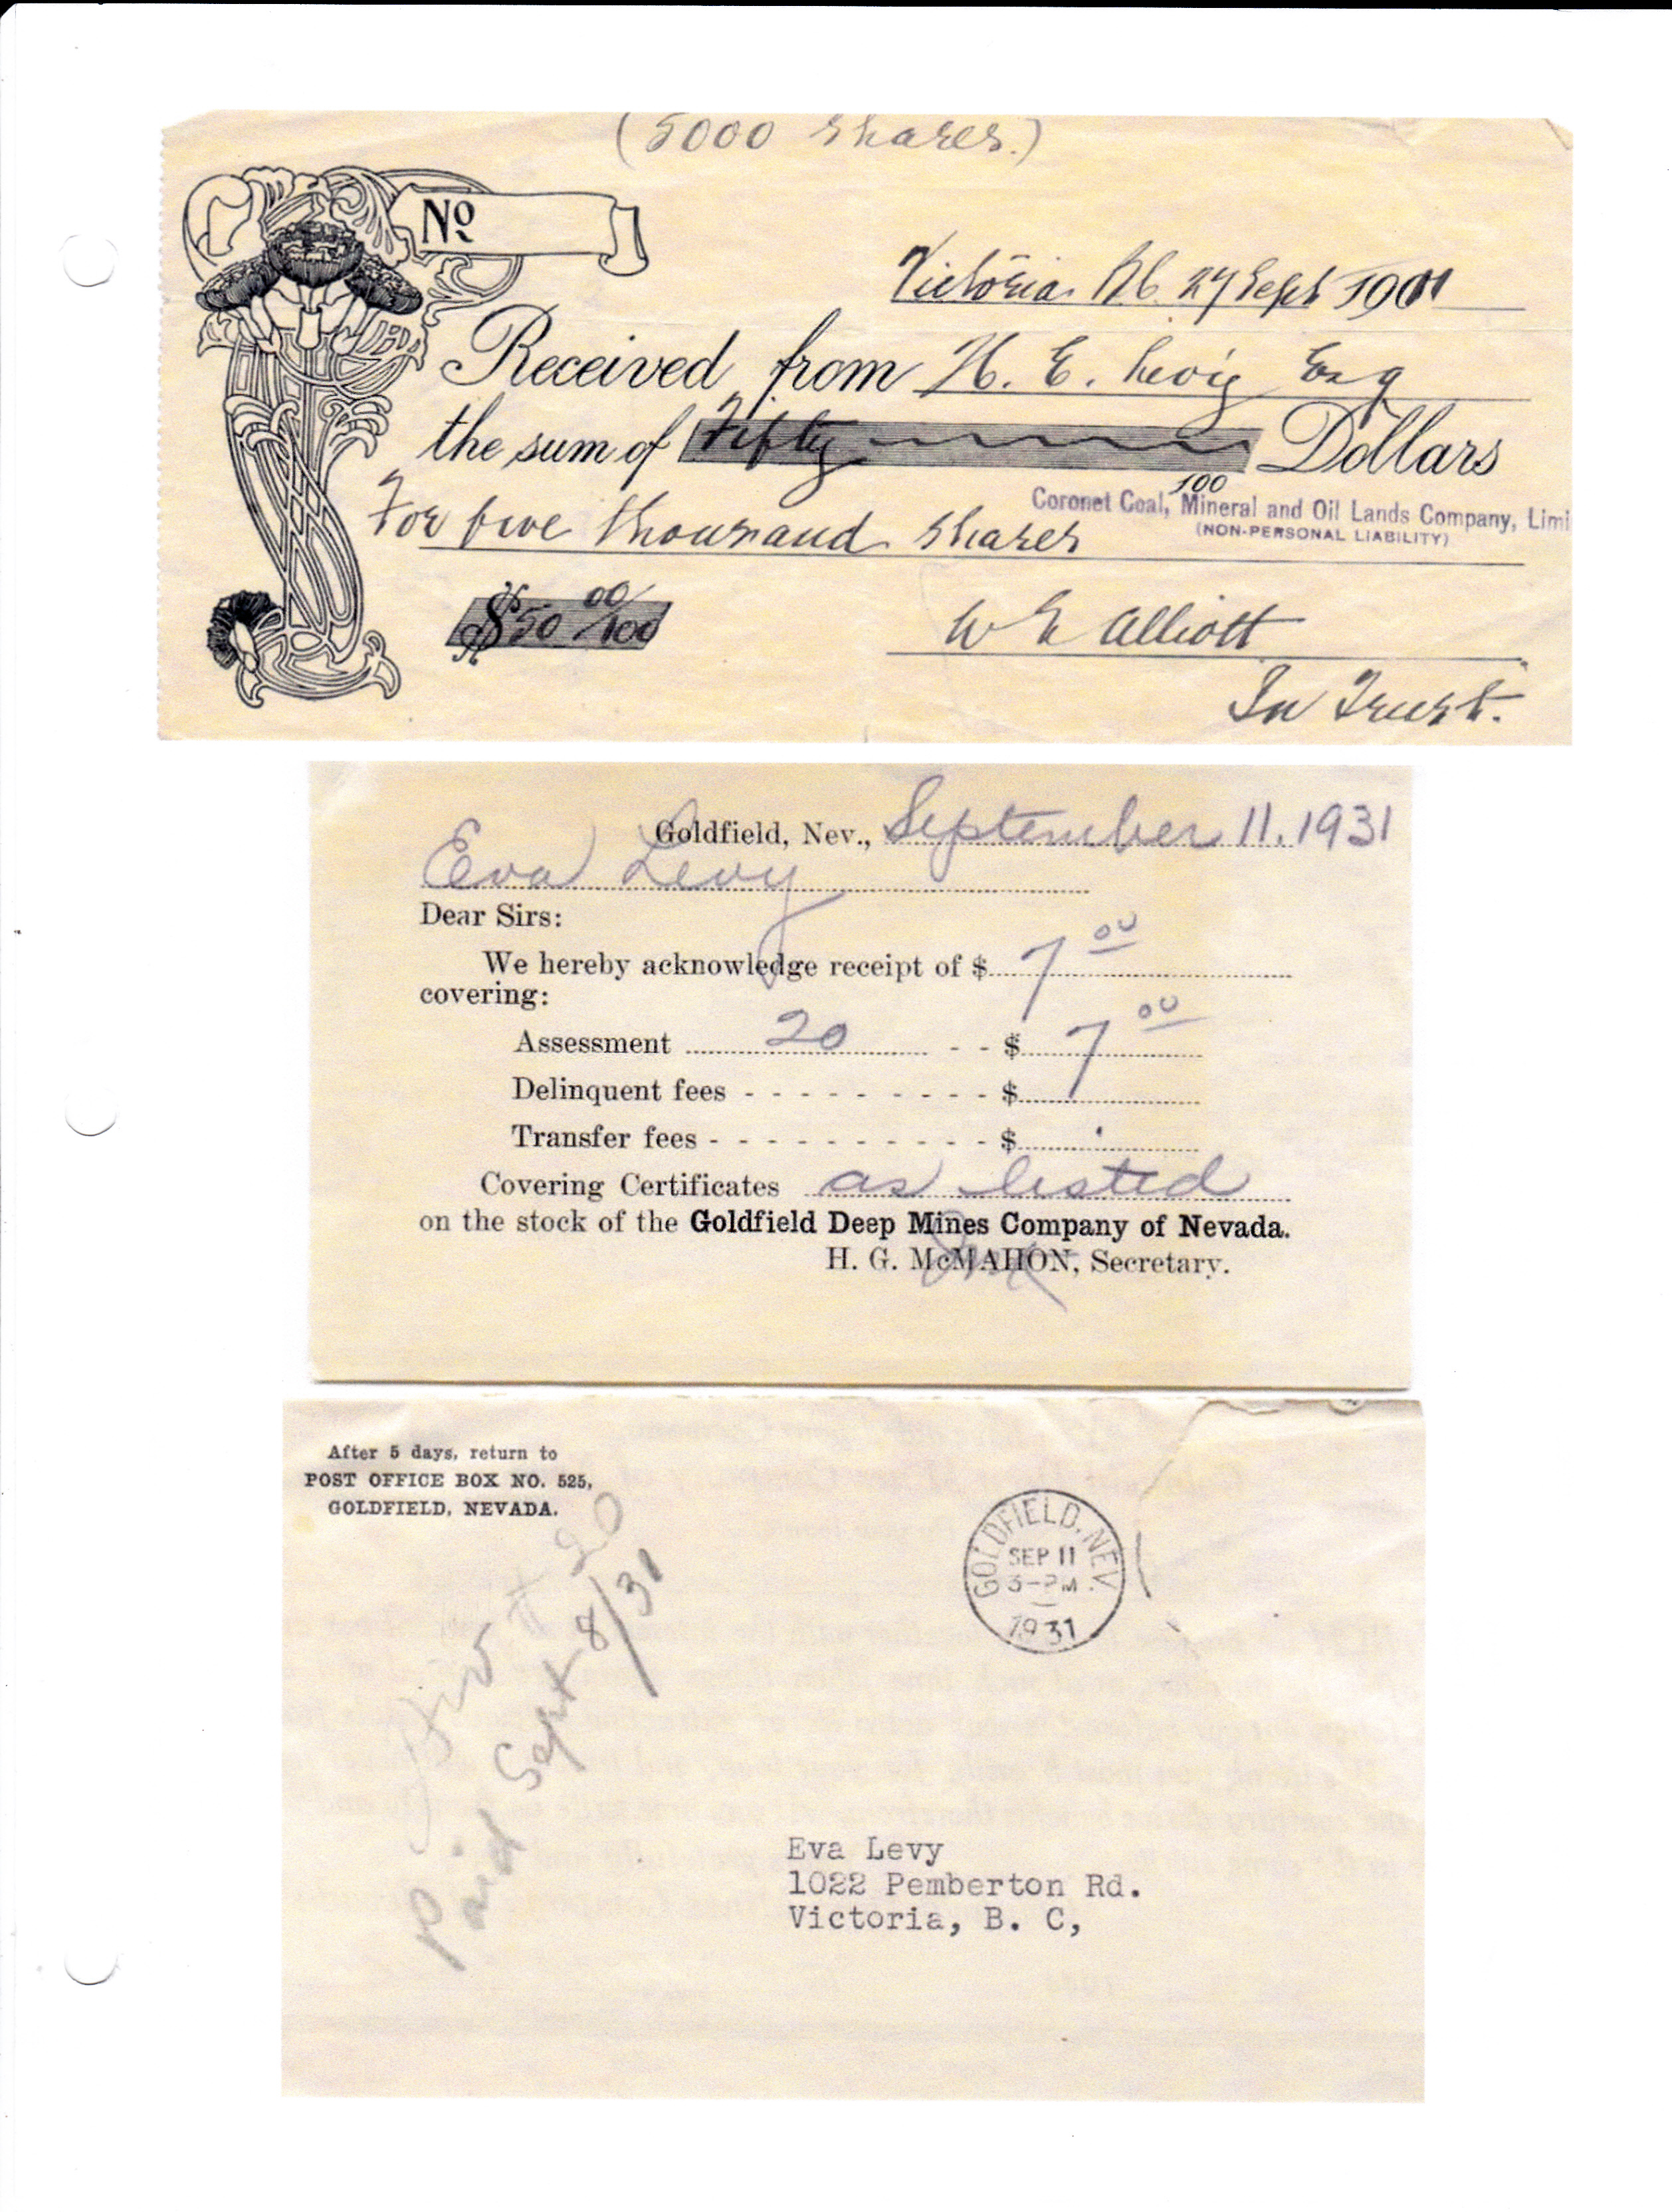 (5000 shares.)
No
Victoria B.C. 27 Sept 1901
Received from H. E. Levy Esq
the sum of Fifty Dollars
100
Coronet Coal, Mineral and Oil Lands Company, Limi
(NON-PERSONAL LIABILITY)
For five thousand shares
$50 00/100
Elliott
In Trust.
Goldfield, Nev., September 11. 1931
Eva Levy
Dear Sirs:
We hereby acknowledge receipt of $ 7 00
covering:
Assessment 20 - - $ 7 00
Delinquent fees - - - - - - - - - $
Transfer fees - - - - - - - - - - $
Covering Certificates as listed
on the stock of the Goldfield Deep Mines Company of Nevada.
H. G. McMAHON, Secretary.
After 5 days, return to
POST OFFICE BOX NO. 525,
GOLDFIELD, NEVADA.
GOLDFIELD, NEV
SEP 11
3-PM
1931
# 20
Paid Sept 8/31
Eva Levy
1022 Pemberton Rd.
Victoria, B. C,